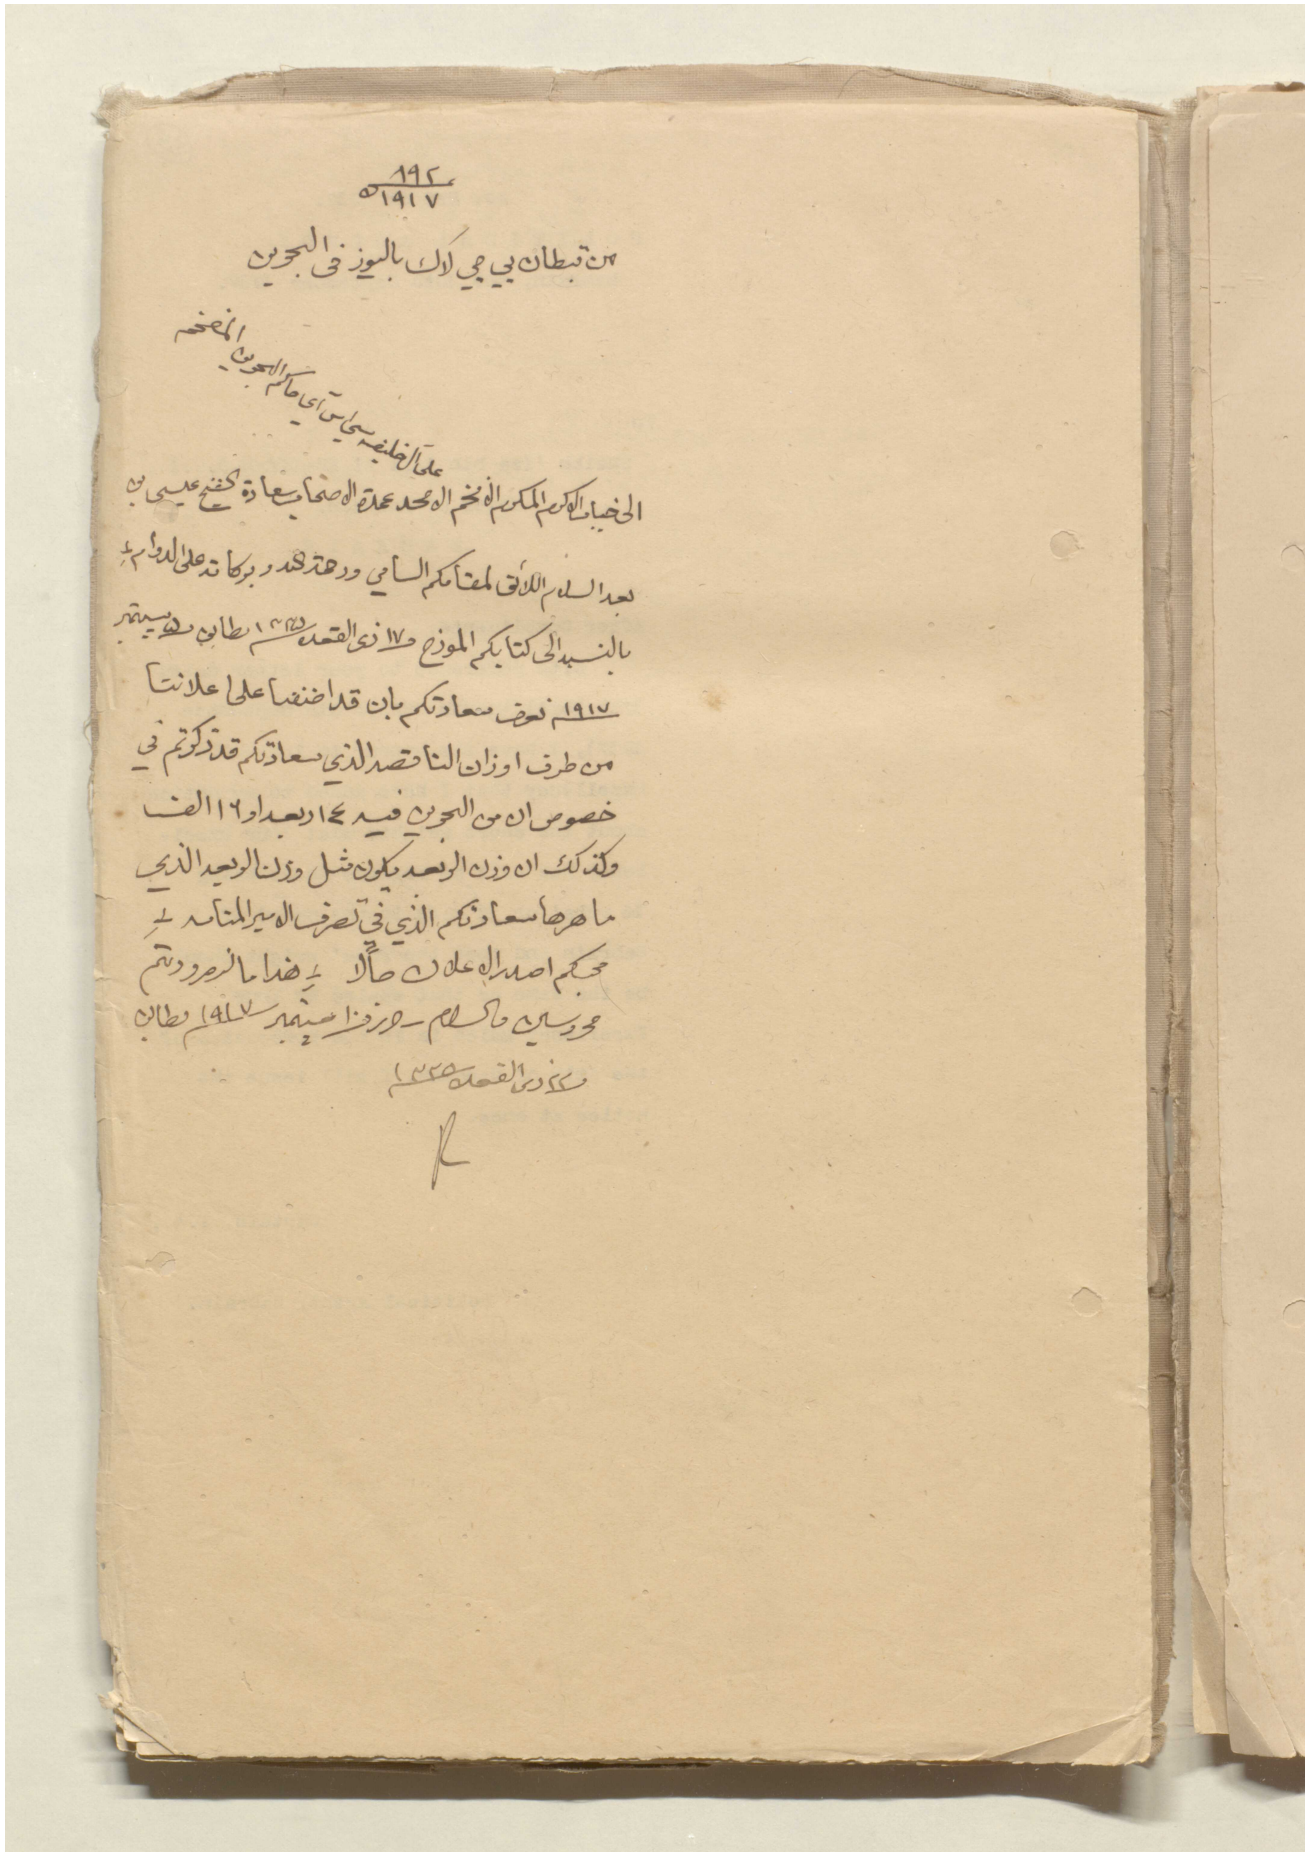 ٨٩٢
١٩١٧
من قبطان بي جي لاك باليوز في البحرين
الى جناب الاكرم المكرم الافخم الامجد عمدة الاصحاب سعادة الشيخ عيسى بن
علي آل خليفه سي اس آي حاكم البحرين المفخم
بعد السلام اللائق لمقامكم السامي ورحمة الله وبركاته على الدوام
بالنسبه الى كتابكم المؤرخ ١٧ ذي القعده ١٣٣٥ مطابق ٥ سبتمبر
١٩١٧ نعرف سعادتكم بان قد اضفنا على اعلاننا
من طرف اوزان الناقصه الذي سعادتكم قد ذكرتم في
خصوص ان من البحرين فيه ١٤ ربعه او ١٦ الف
وكذلك ان وزن الربعه يكون مثل وزن الربعه الذي
ماهرها سعادتكم الذي في تصرف الامير المنامه
محبكم اصدر الاعلان حالاً هذا ما لزم ودمتم
محروسين والسلام حرر في ١٠ سبتمبر ١٩١٧ مطابق
٢٢ ذي القعده ١٣٣٥